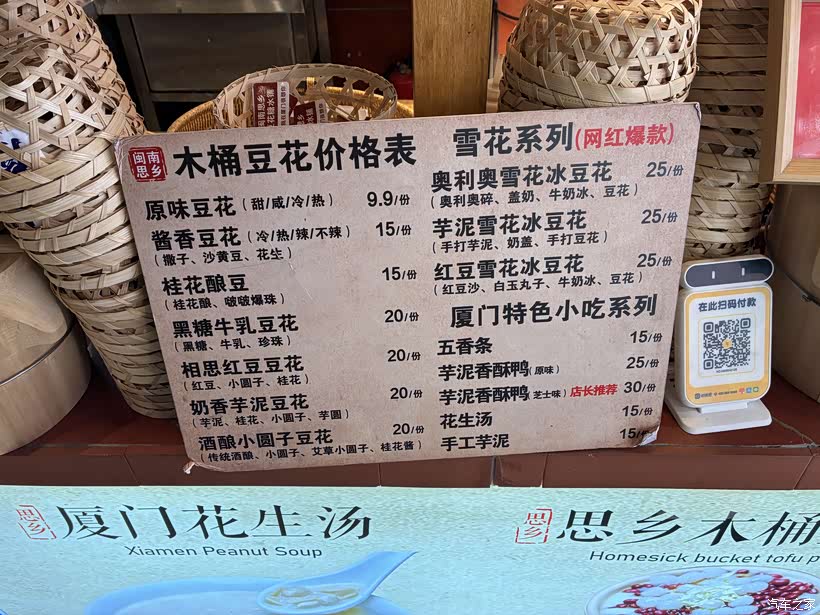 闽南
思乡
木桶豆花价格表
原味豆花（甜/咸/冷/热） 9.9/份
酱香豆花（冷/热/辣/不辣） 15/份
（撒子、沙黄豆、花生）
桂花酿豆 15/份
（桂花酿、啵啵爆珠）
黑糖牛乳豆花 20/份
（黑糖、牛乳、珍珠）
相思红豆豆花 20/份
（红豆、小圆子、桂花）
奶香芋泥豆花 20/份
（芋泥、桂花、小圆子、芋圆）
酒酿小圆子豆花 20/份
（传统酒酿、小圆子、艾草小圆子、桂花酱）
雪花系列(网红爆款)
奥利奥雪花冰豆花 25/份
（奥利奥碎、盖奶、牛奶冰、豆花）
芋泥雪花冰豆花 25/份
（手打芋泥、奶盖、手打豆花）
红豆雪花冰豆花 25/份
（红豆沙、白玉丸子、牛奶冰、豆花）
厦门特色小吃系列
五香条 15/份
芋泥香酥鸭（原味） 25/份
芋泥香酥鸭（芝士味）店长推荐 30/份
花生汤 15/份
手工芋泥 15/份
在此扫码付款
思乡 厦门花生汤
Xiamen Peanut Soup
思乡 思乡木桶
Homesick bucket tofu p
汽车之家